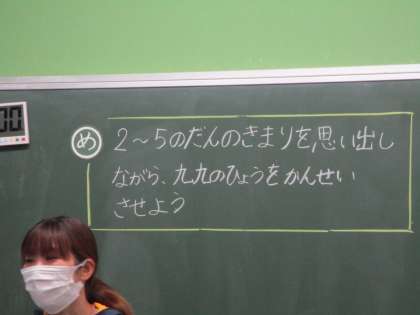 00
め 2～5のだんのきまりを思い出し
ながら、九九のひょうをかんせい
させよう